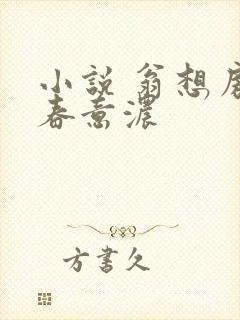 小説 翁想
春意濃
方書久